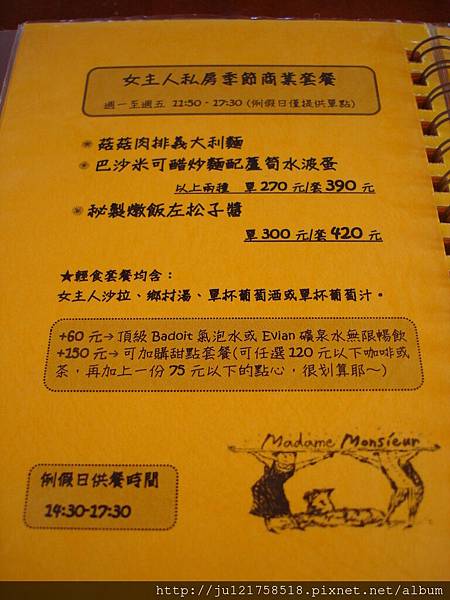 女主人私房季節商業套餐
週一至週五 11:50 - 17:30 (例假日僅提供單點)
菇菇肉排義大利麵
巴沙米可醋炒麵配蘆筍水波蛋
以上兩種 單 270 元/套 390 元
秘製燉飯左松子醬
單 300 元/套 420 元
★輕食套餐均含：
女主人沙拉、鄉村湯、單杯葡萄酒或單杯葡萄汁。
+60 元→頂級 Badoit 氣泡水或 Evian 礦泉水無限暢飲
+150 元→可加購甜點套餐(可任選 120 元以下咖啡或
茶，再加上一份 75 元以下的點心，很划算耶～)
Madame Monsieur
例假日供餐時間
14:30-17:30
http://ju121758518.pixnet.net/album